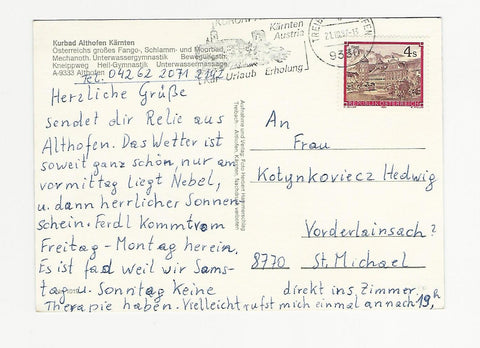 Kurbad Althofen Kärnten
Österreichs großes Fango-, Schlamm- und Moorbad,
Mechanoth. Unterwassergymnastik Bewegungsth.
Kneippweg Heil-Gymnastik Unterwassermassage
A-9333 Althofen
Tel. 04262 2071 2192
Kärnten
Austria
Kur Urlaub Erholung
9330
4 s
REPUBLIK ÖSTERREICH
Herzliche Grüße
sendet dir Relie aus
Althofen. Das Wetter ist
soweit ganz schön, nur am
vormittag liegt Nebel,
u. dann herrlicher Sonnen-
schein. Ferdl kommt vom
Freitag - Montag herein.
Es ist fad weil wir Sams-
tag u. Sonntag Keine
Therapie haben. Vielleicht rufst mich einmal an nach 19 h
direkt ins Zimmer.
An
Frau
Kotynkoviecz Hedwig
Vorderlainsach 2
8770 St. Michael